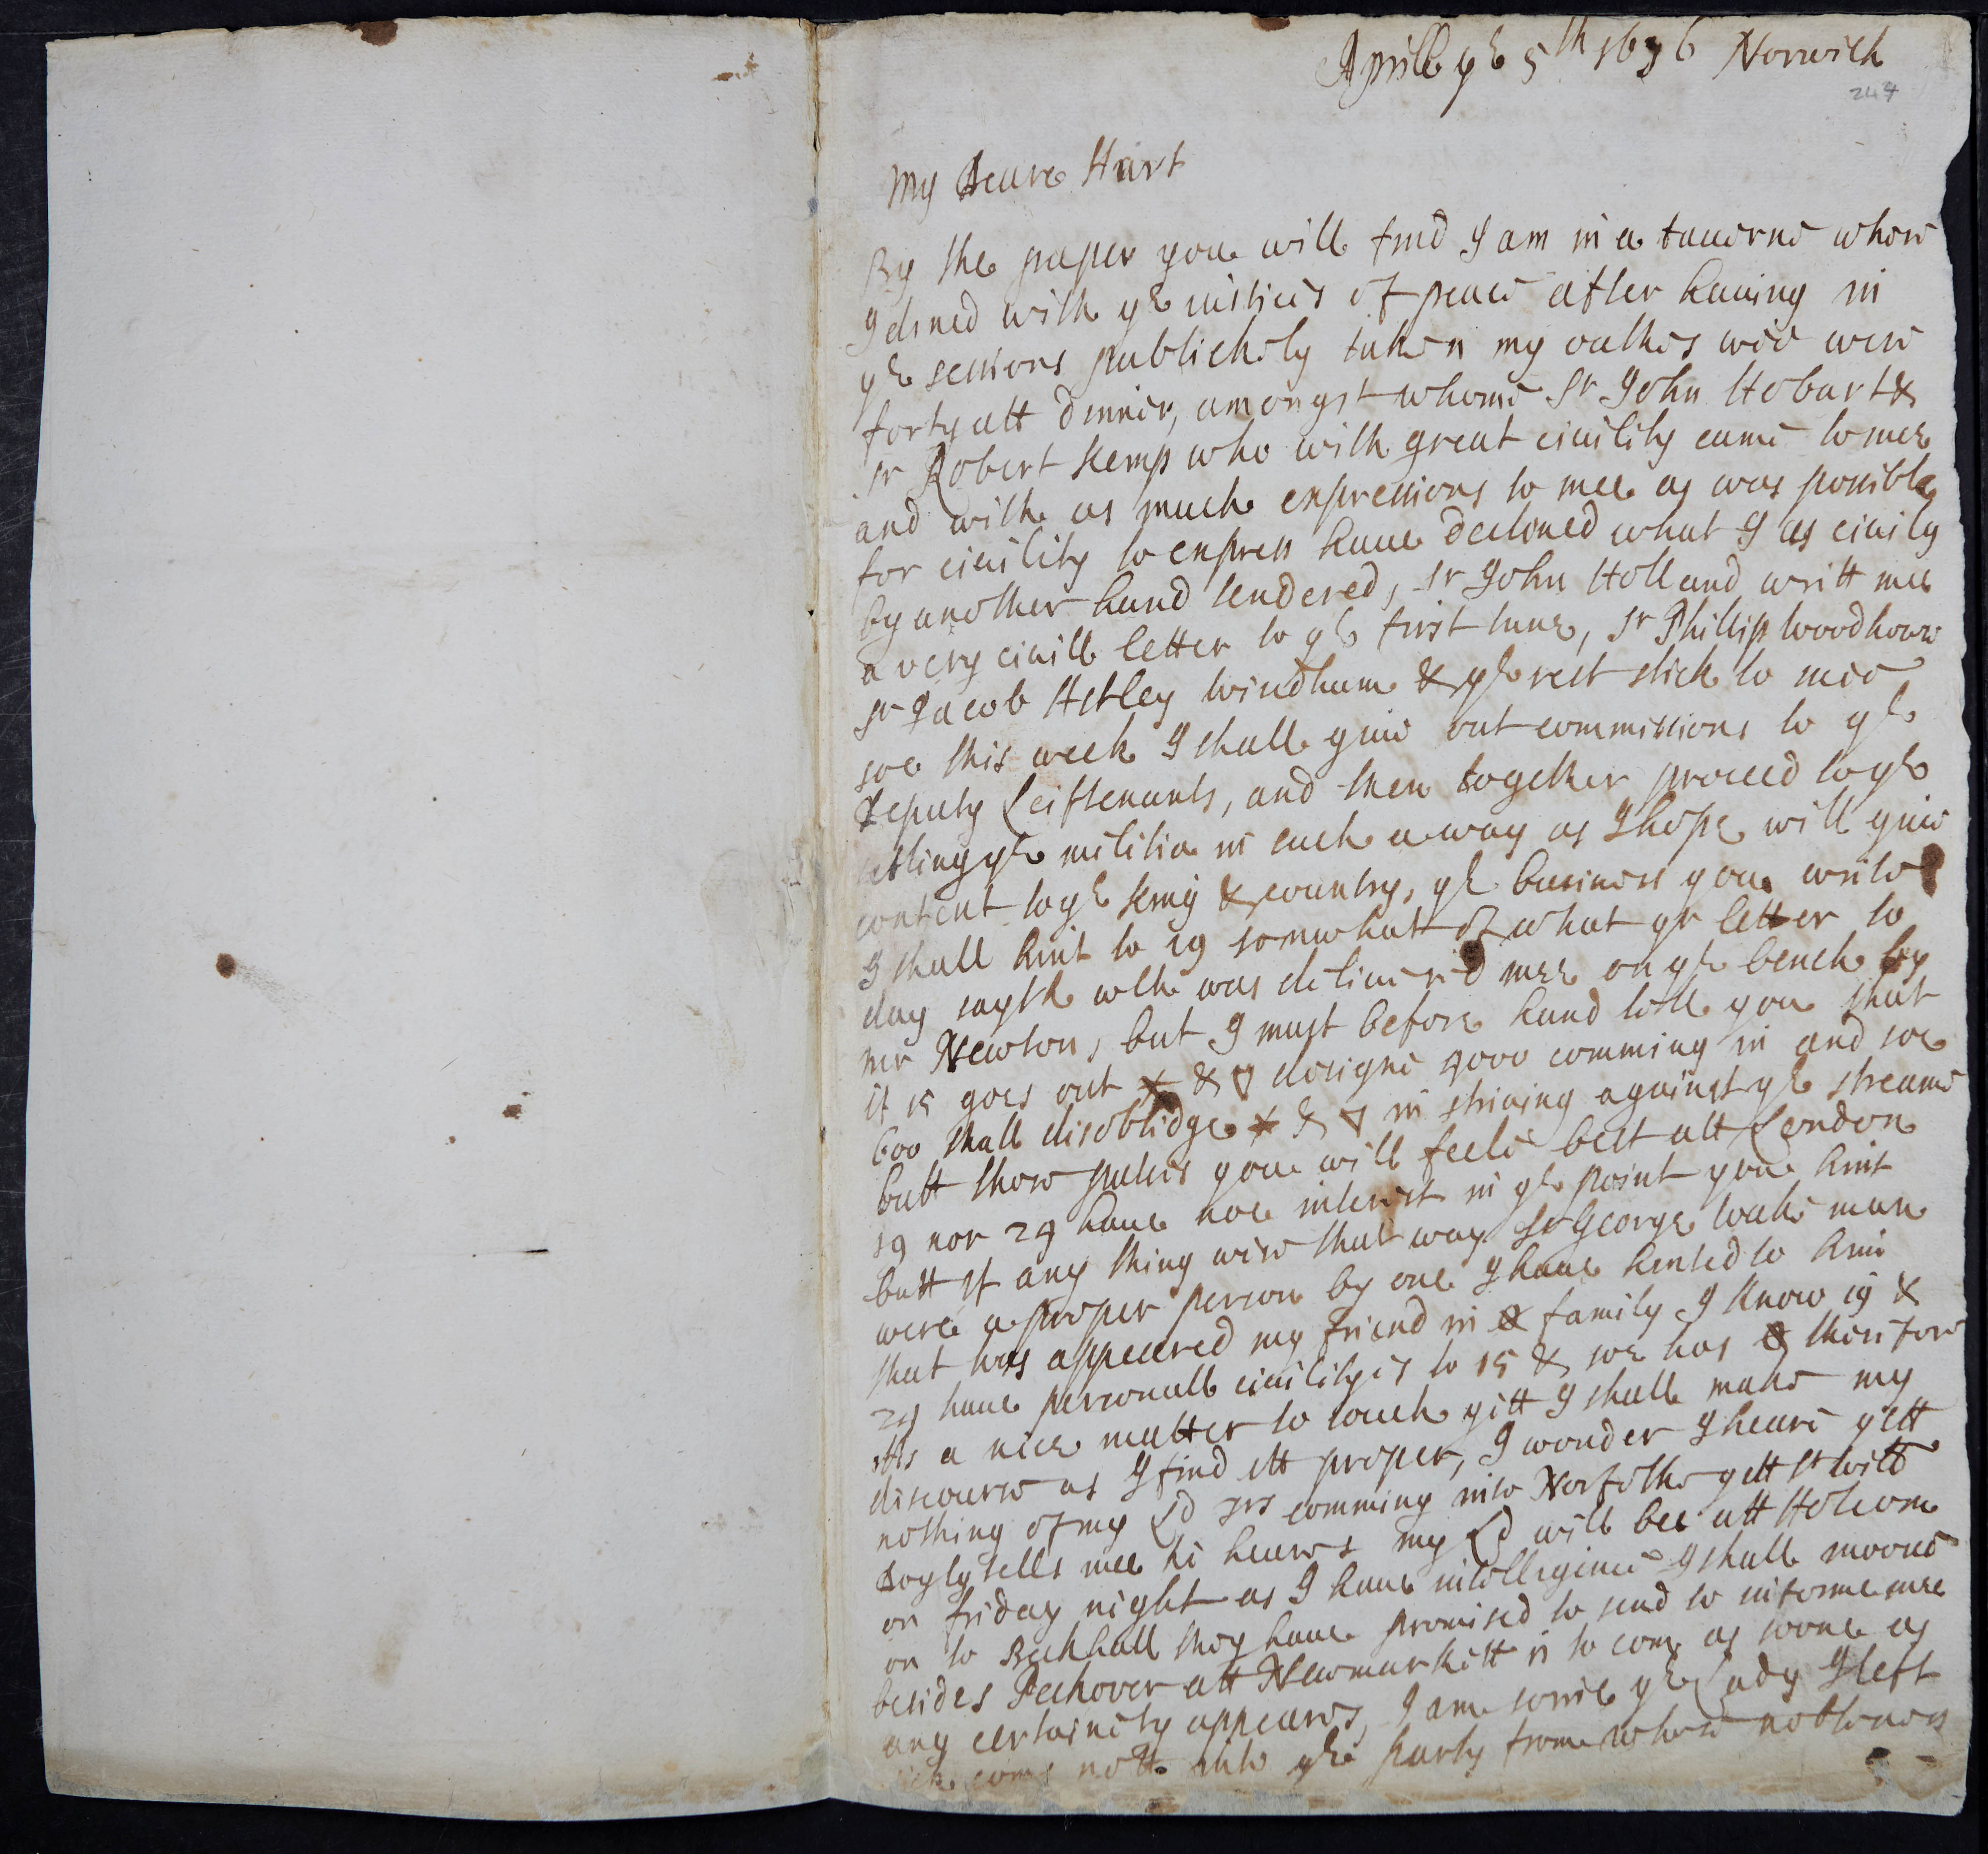 Aprill ye 5th 1676 Norwich
247
My Deare Hart
By the paper you will find I am in a tauerne where
I dined with ye iustices of peace after hauing in
ye sessions publickely taken my oathes wee were
forty att dinner, amongst whome Sr John Hobart &
Sr Robert Kemp who with great ciuility came to mee
and with as much expressions to mee as was possible
for ciuility to express haue declined what I as ciuily
by another hand tendered, Sr John Holland writt mee
a very ciuill letter to ye first tune, Sr Phillip woodhowse
Sr Jacob Astley windham & ye rest stick to mee
soe this week I shall giue out commissions to ye
Deputy Leiftenants, and then together proceed to ye
setling ye militia in such a way as I hope will giue
content to ye king & country, ye business you write
I shall hint to 19 somwhat of what yr letter to
day sayth wch was deliuered mee on ye bench by
mr Newton, but I must before hand tell you that
if 15 goes out & designe 4000 comming in and soe
600 shall disoblidge & in striuing against ye streame
butt those pulses you will feele best att London
19 nor 29 haue noe interest in ye point you hint
butt if any thing were that way Sr George wakeman
were a proper person by one I haue hinted to him
that has appeared my friend in family I know 19 &
29 haue personall ciuilityes to 15 & soe has therefore
itts a nice matter to touch yitt I shall make my
discourse as I find itt proper, I wonder I heare yett
nothing of my Ld comming into Norfolke yett Sr Will
Doyly tells mee he heares my Ld will bee att Holcom
on friday night as I haue intelligence I shall mooue
on to Beckhall they haue promised to send to informe mee
besides Peckover att Newmarkitt is to come as soone as
any certainety appeares, I am sorrie ye Lady I left
sick comes nott into ye party from whose nobleness